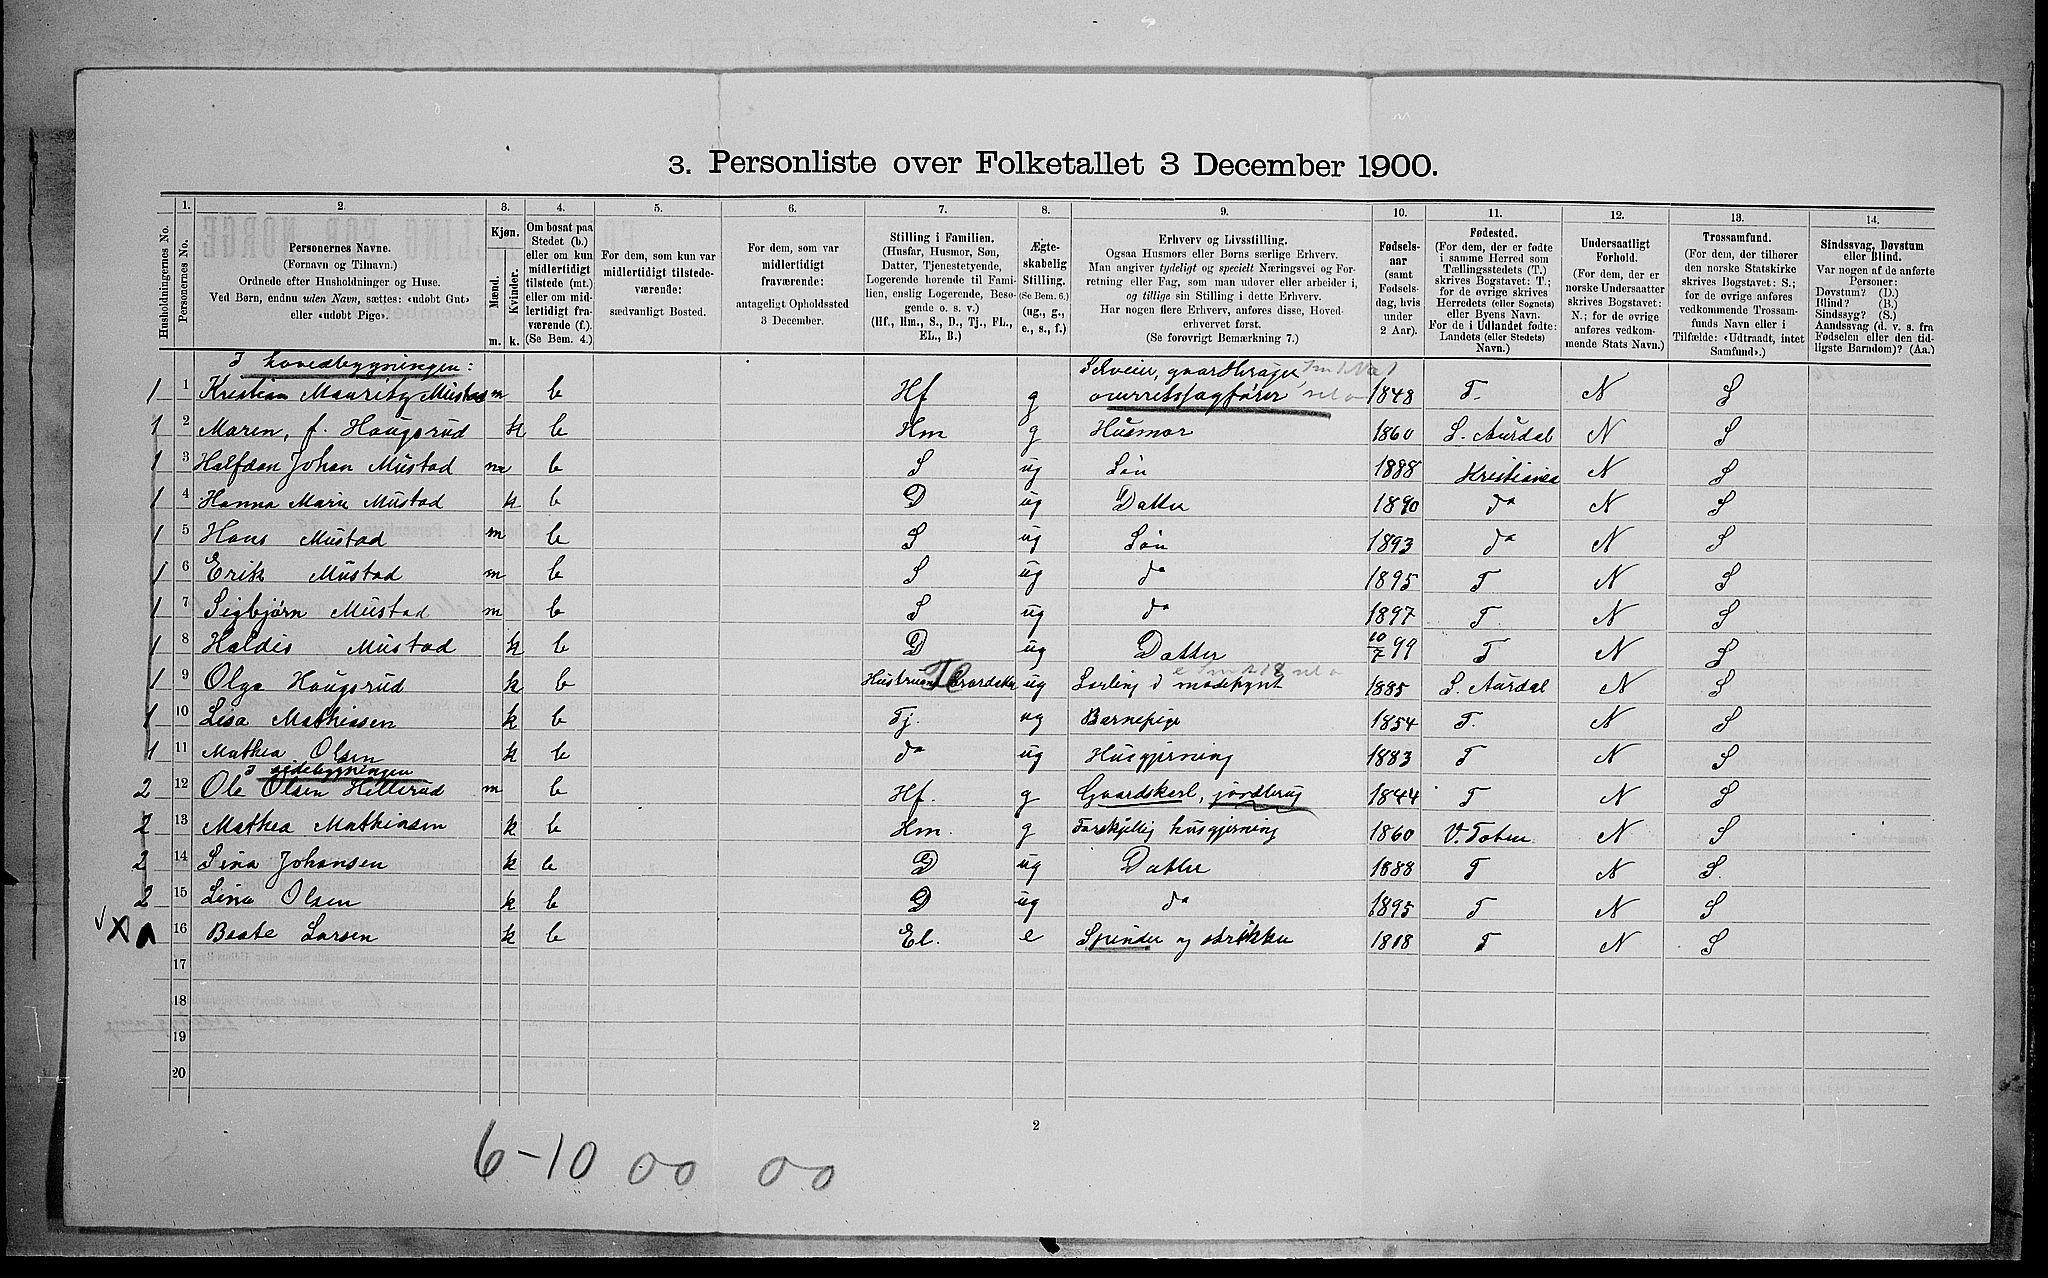 3. Personliste over Folketallet 3 December 1900.
Husholdningernes No.
1.
Personernes No.
2.
Personernes Navne.
(Fornavn og Tilnavn.)
Ordnede efter Husholdninger og Huse.
Ved Børn, endnu uden Navn, sættes: «udøbt Gut»
eller «udøbt Pige».
3.
Kjøn.
Mænd.
Kvinder.
m. k.
4.
Om bosat paa
Stedet (b.)
eller om kun
midlertidigt
tilstede (mt.)
eller om mid-
lertidigt fra-
værende (f.).
(Se Bem. 4.)
5.
For dem, som kun var
midlertidigt tilstede-
værende:
sædvanligt Bosted.
6.
For dem, som var
midlertidigt
fraværende:
antageligt Opholdssted
3 December.
7.
Stilling i Familien.
(Husfar, Husmor, Søn,
Datter, Tjenestetyende,
Logerende hørende til Fami-
lien, enslig Logerende, Besø-
gende o. s. v.)
(Hf., Hm., S., D., Tj., FL.,
EL., B.)
8.
Ægte-
skabelig
Stilling.
(Se Bem. 6.)
(ug., g.,
e., s., f.)
9.
Erhverv og Livsstilling.
Ogsaa Husmors eller Børns særlige Erhverv.
Man angiver tydeligt og specielt Næringsvei og For-
retning eller Fag, som man udøver eller arbeider i,
og tillige sin Stilling i dette Erhverv.
Har nogen flere Erhverv, anføres disse, Hoved-
erhvervet først.
(Se forøvrigt Bemærkning 7.)
10.
Fødsels-
aar
(samt
Fødsels-
dag, hvis
under
2 Aar).
11.
Fødested.
(For dem, der er fødte
i samme Herred som
Tællingsstedets (T.)
skrives Bogstavet: T.;
for de øvrige skrives
Herredets (eller Sognets)
eller Byens Navn.
For de i Udlandet fødte:
Landets (eller Stedets)
Navn.)
12.
Undersaatligt
Forhold.
(For dem, der er
norske Undersaatter
skrives Bogstavet:
N.; for de øvrige
anføres vedkom-
mende Stats Navn.)
13.
Trossamfund.
(For dem, der tilhører
den norske Statskirke
skrives Bogstavet: S.;
for de øvrige anføres
vedkommende Trossam-
funds Navn eller i
Tilfælde: «Udtraadt, intet
Samfund».)
14.
Sindssvag, Døvstum
eller Blind.
Var nogen af de anførte
Personer:
Døvstum? (D.)
Blind? (B.)
Sindssyg? (S.)
Aandssvag (d. v. s. fra
Fødselen eller den tid-
ligste Barndom)? (Aa.)
I hovedbygningen: Selveier, gaardbruger,
1 1 Kristian Mauritz Mustad m b Hf g overretssagfører 1848 T. N S
1 2 Maren, f. Haugsrud k b Hm g Husmor 1860 S. Aurdal N S
1 3 Halfdan Johan Mustad m b S ug Søn 1888 Kristiania N S
1 4 Hanna Marie Mustad k b D ug Datter 1890 da N S
1 5 Hans Mustad m b S ug Søn 1893 da N S
1 6 Erik Mustad m b S ug da 1895 T N S
1 7 Sigbjørn Mustad m b S ug da 1897 T. N S
1 8 Haldis Mustad k b D ug Datter 10/7 99 T N S
1 9 Olga Haugsrud k b Hustruens ug Lærling i modepynt 1885 S. Aurdal N S
1 10 Lisa Mathiasen k b Tj. ug Barnepige 1854 T. N S
1 11 Mathea Olsen k b da ug Husgjerning 1883 T N S
I sidebygningen
2 12 Ole Olsen Hillerud m b Hf. g Gaardskarl, jordbrug 1844 T N S
2 13 Mathea Mathiasen k b Hm. g Forskjellig husgjerning 1860 V. Toten N S
2 14 Sina Johansen k b D ug Datter 1888 T N S.
2 15 Lina Olsen k b D ug da 1895 T N S
X 16 Beate Larsen k b El. e Spinder og strikker 1818 T N S
17
18
19
20
2
6-10 00 00